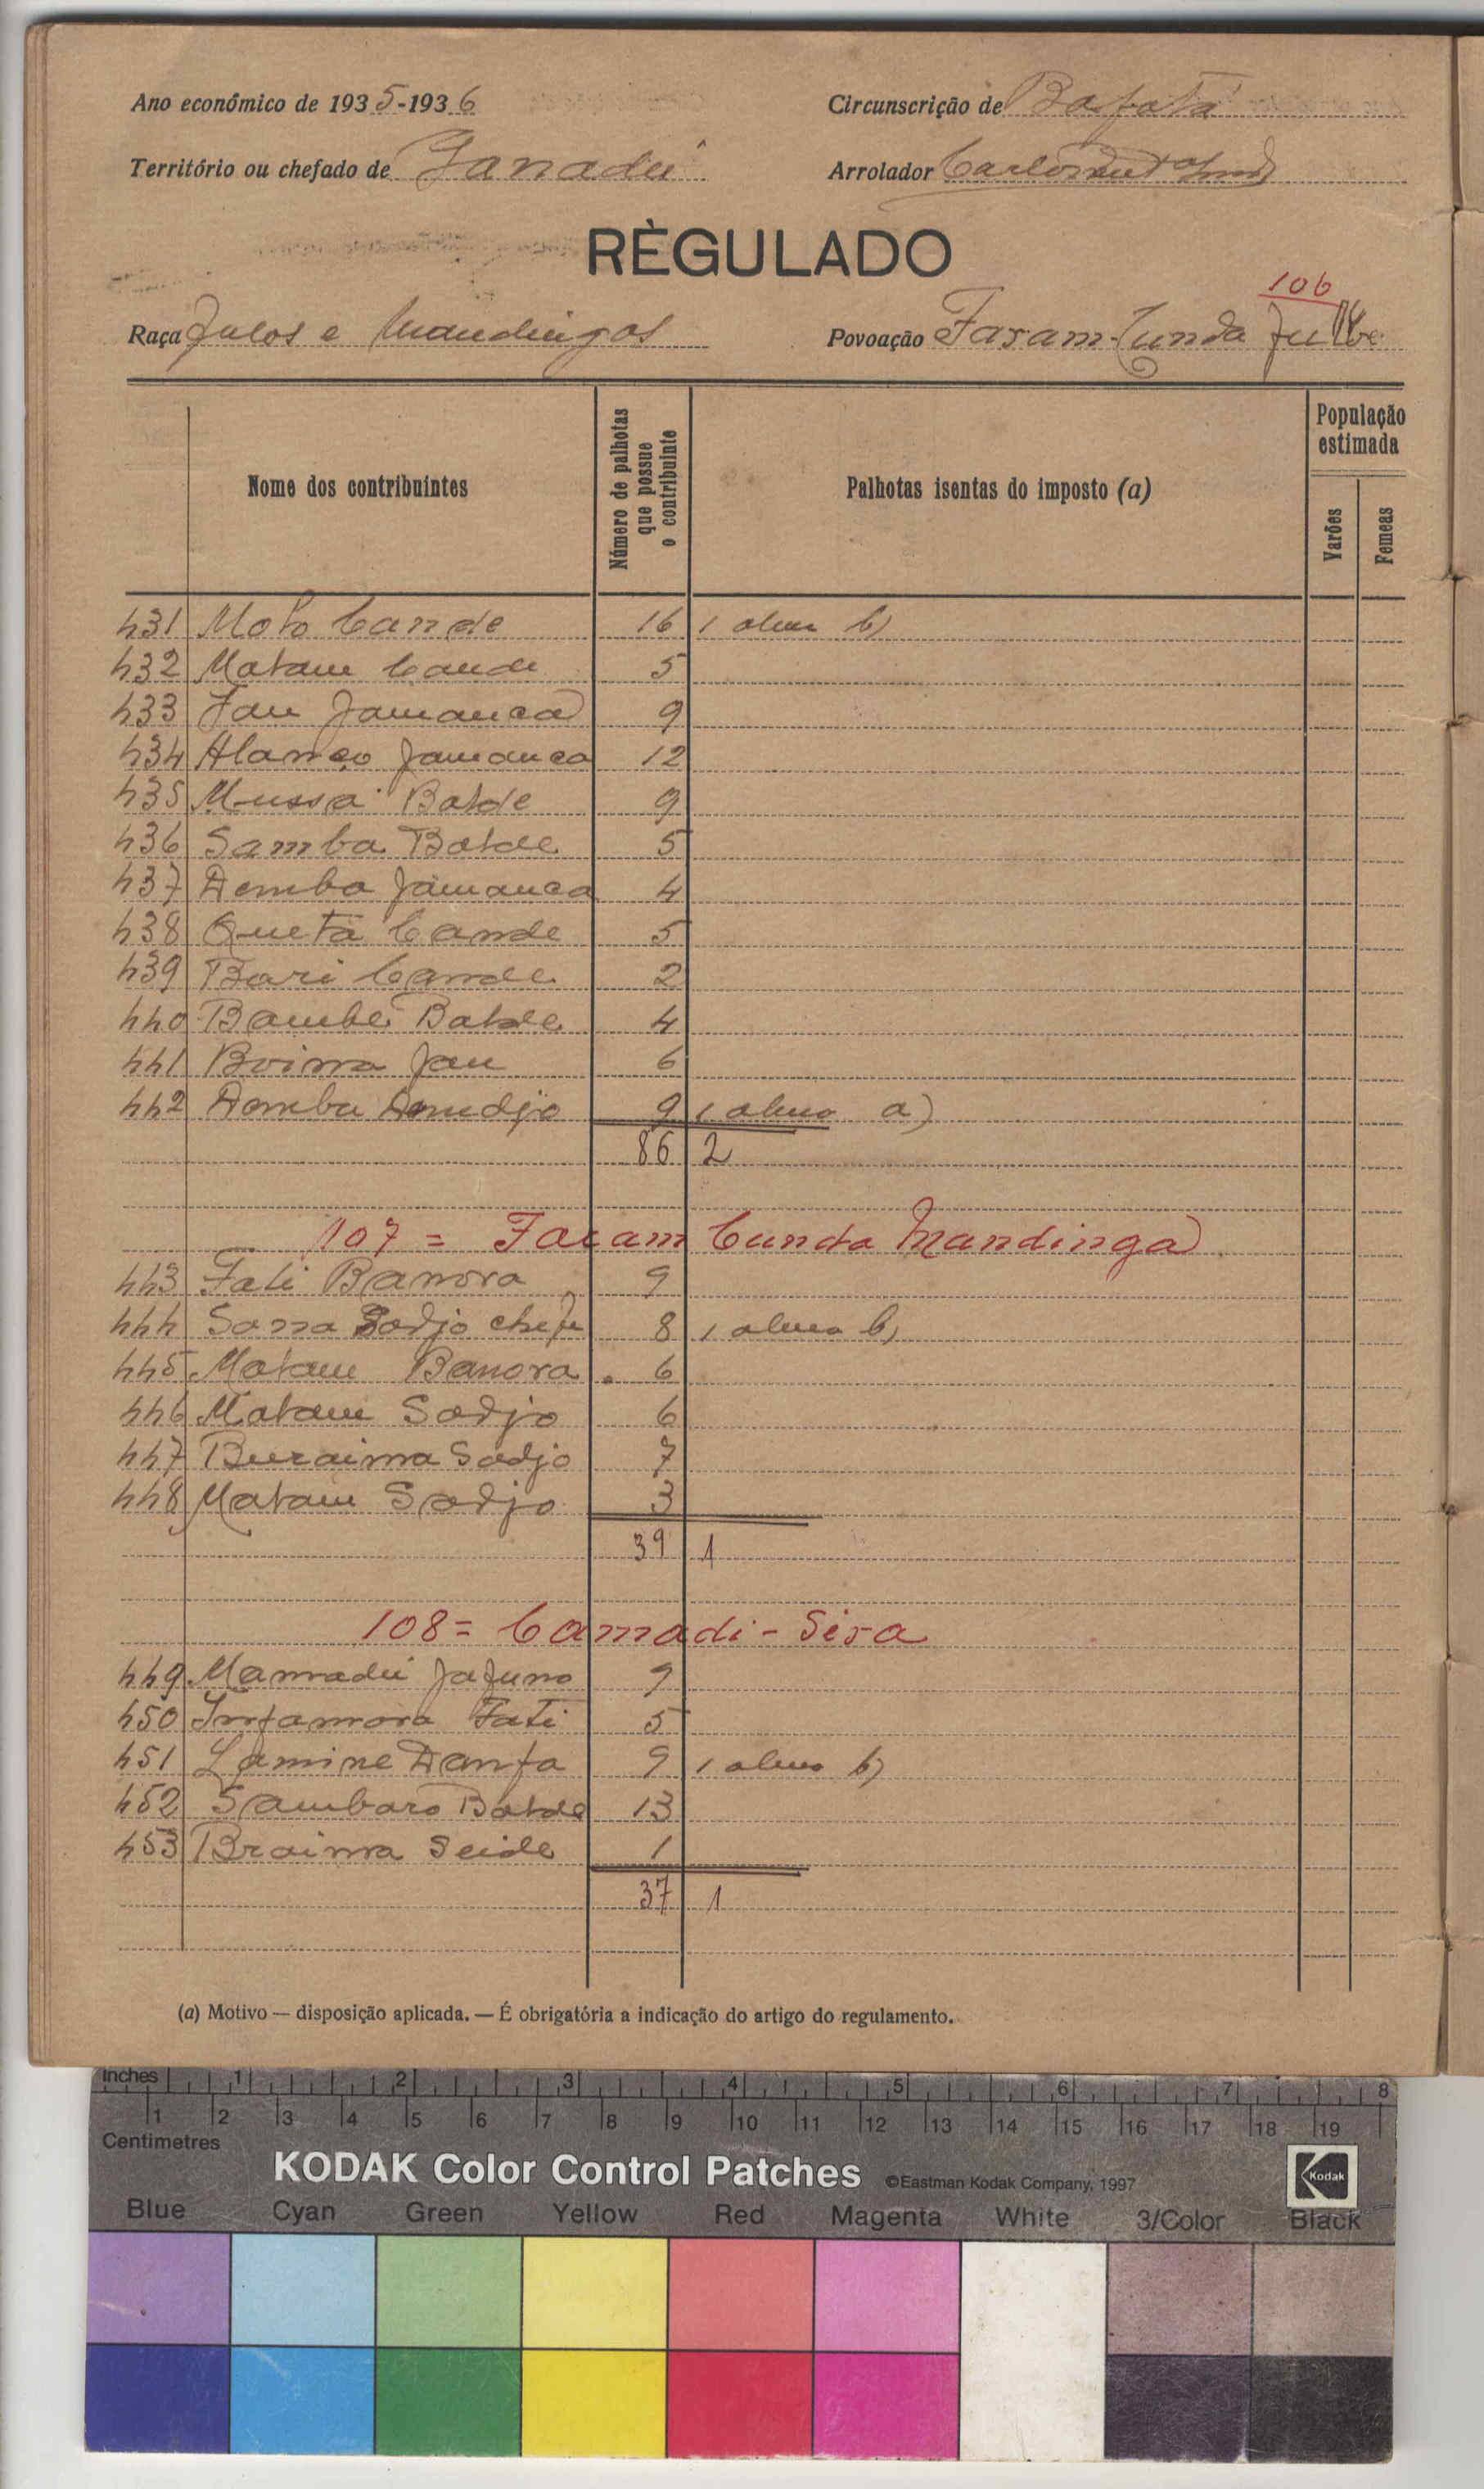 Ano económico de 1935-1936
Circunscrição de Bafatá
Território ou chefado de Ganadú
Arrolador
RÈGULADO
106
Raça Fulos e Mandingos
Povoação Faram-Cunda Fulbe
Nome dos contribuintes
Número de palhotas que possue o contribuinte
Palhotas isentas do imposto (a)
População estimada
Varões
Femeas
431 Molo Cande 16 1 b)
432 Matam Cande 5
433 Jau Jamanca 9
434 Alanso Jamanca 12
435 Mussa Balde 9
436 Samba Balde 5
437 Demba Jamanca 4
438 Queta Cande 5
439 Bari Cande 2
440 Bambé Balde 4
441 Boima Jau 6
442 Demba 9 1 a)
86 2
107 = Faram Cunda Mandinga
443 Fati Banora 9
444 Sanna Sadjo chefe 8 1 b)
445 Matam Banora 6
446 Matam Sadjo 6
447 Buraima Sadjo 7
448 Matam Sadjo 3
39 1
108 = Camadi-Sira
449 Mamadú Jafuno 9
450 Infamora Fati 5
451 Lamine Danfa 9 1 b)
452 Sambaro Balde 13
453 Braima Seide 1
37 1
(a) Motivo — disposição aplicada. — É obrigatória a indicação do artigo do regulamento.
Inches 1 2 3 4 5 6 7 8
1 2 3 4 5 6 7 8 9 10 11 12 13 14 15 16 17 18 19
Centimetres
KODAK Color Control Patches ©Eastman Kodak Company, 1997 Kodak
Blue Cyan Green Yellow Red Magenta White 3/Color Black